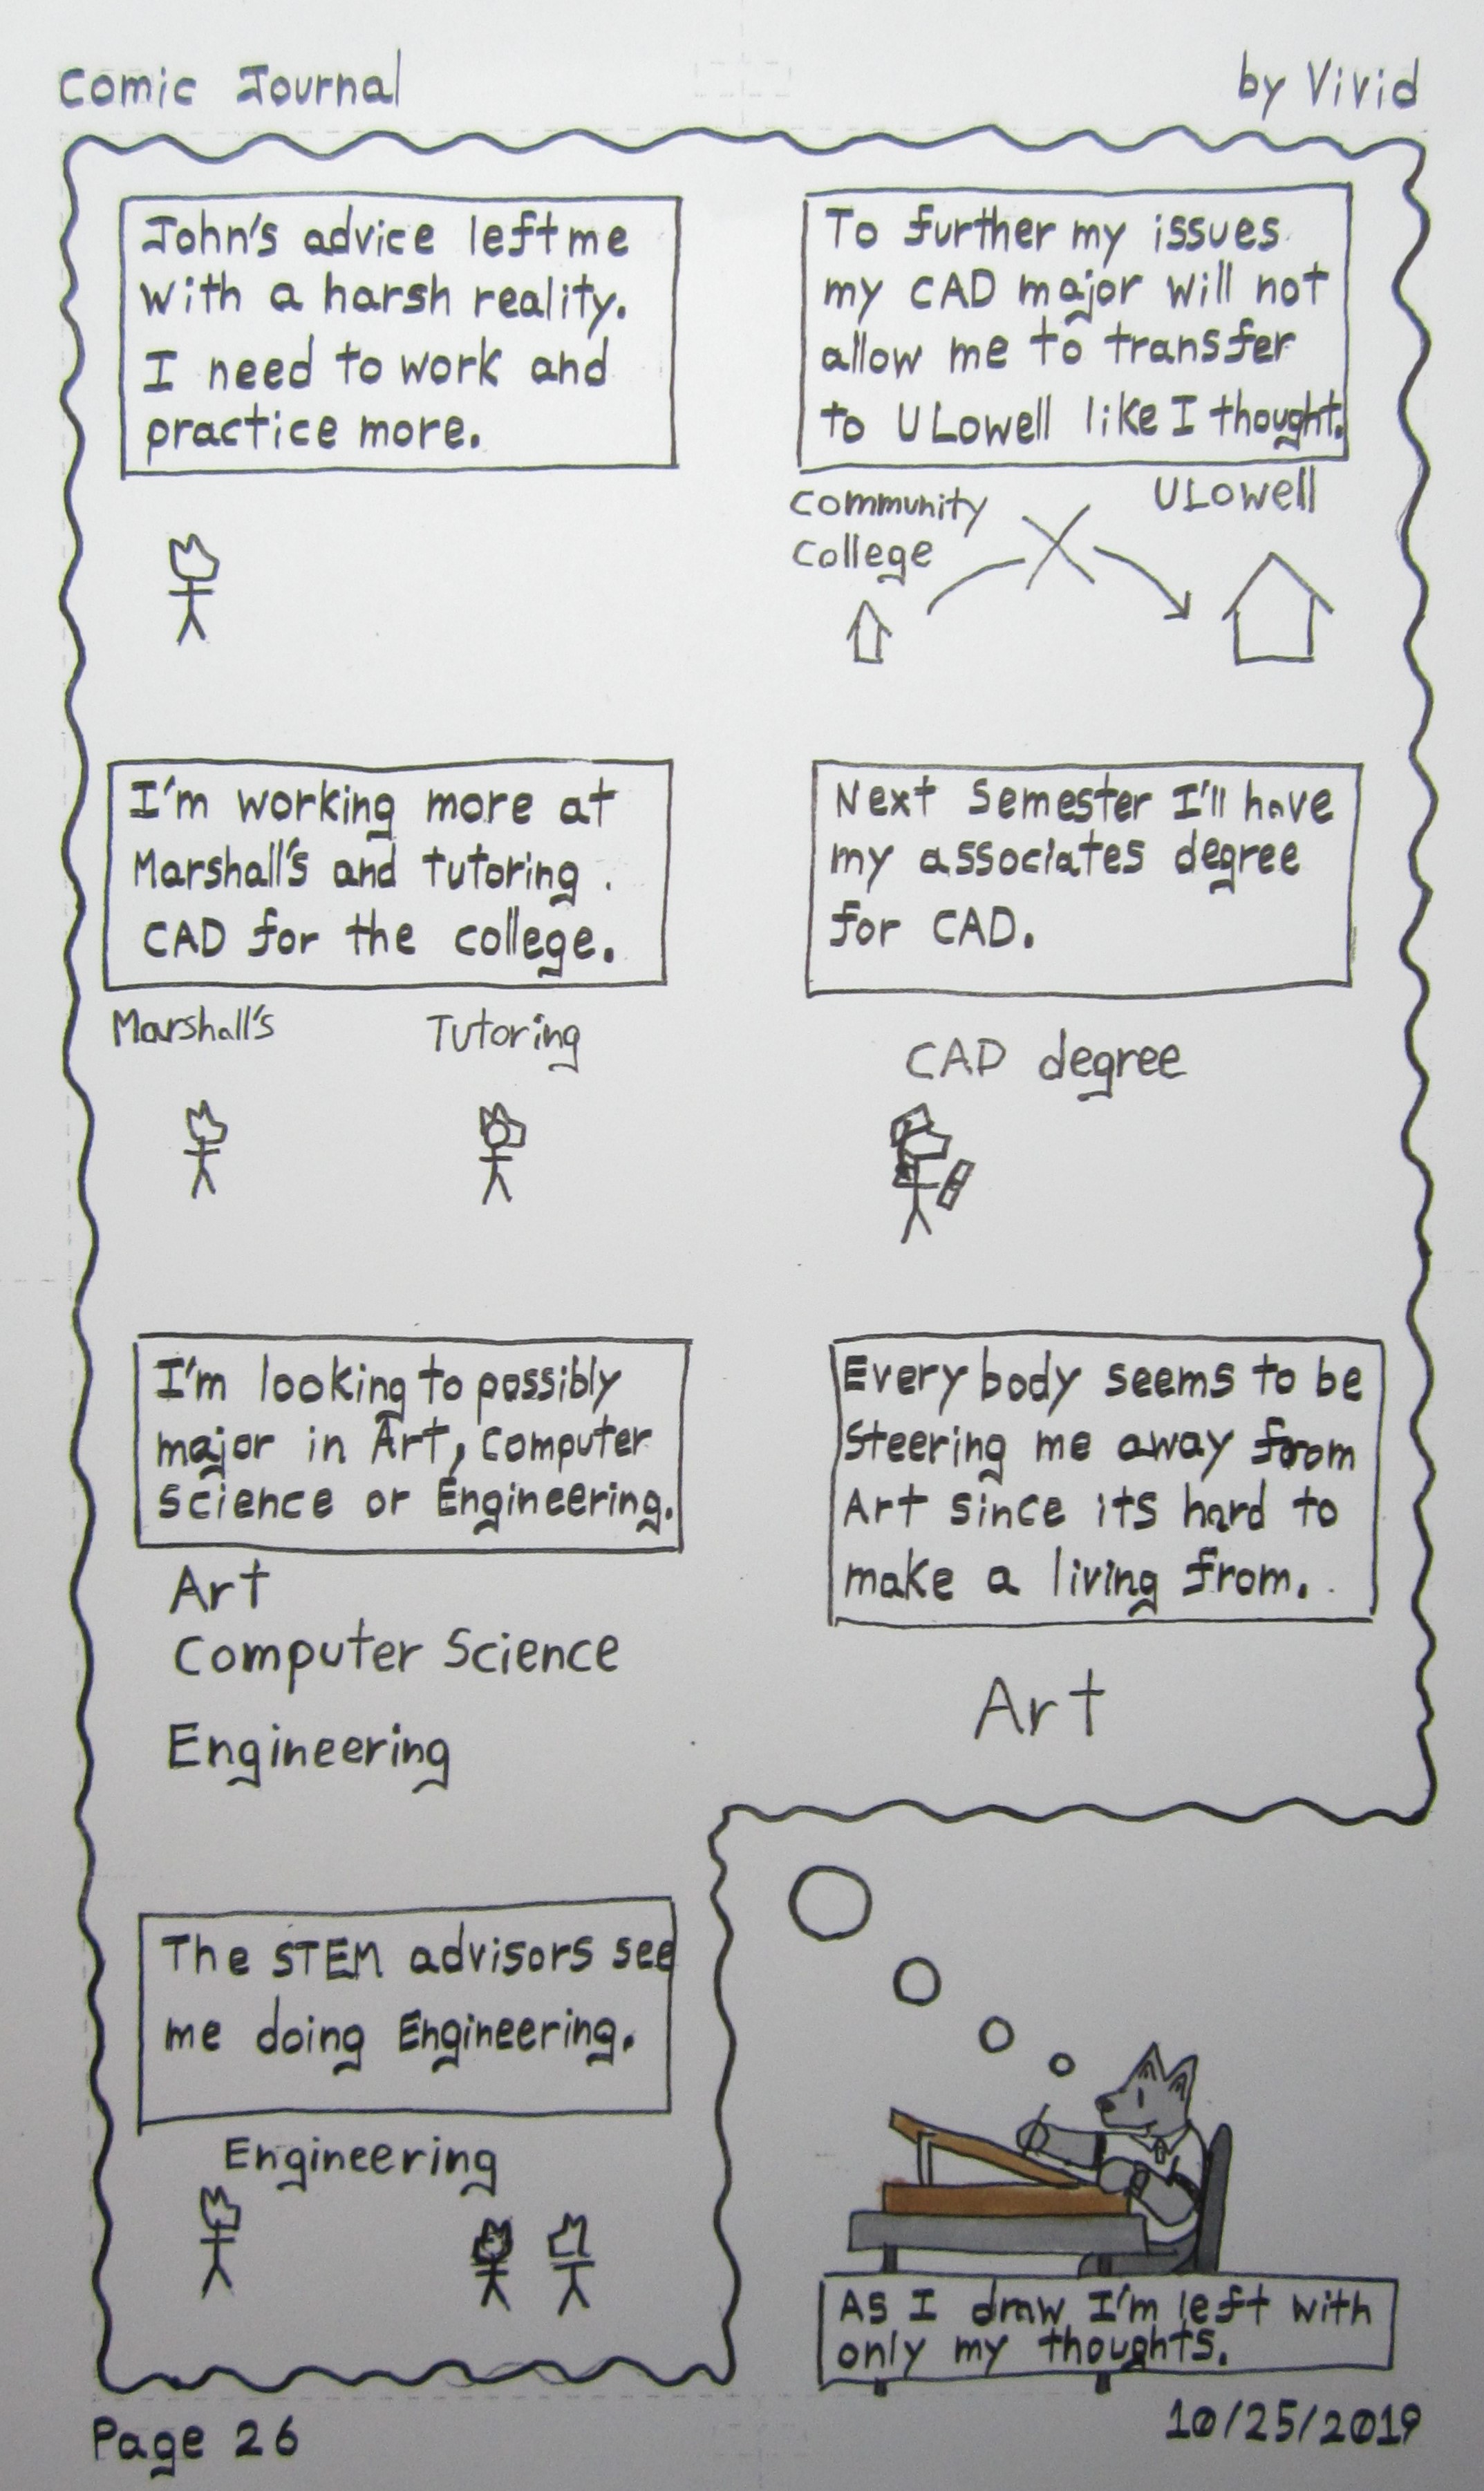 Comic Journal
by Vivid
John's advice left me
with a harsh reality.
I need to work and
practice more.
To further my issues
my CAD major will not
allow me to transfer
to ULowell like I thought.
Community
College
ULowell
I'm working more at
Marshall's and tutoring.
CAD for the college.
Marshall's
Tutoring
Next Semester I'll have
my associates degree
for CAD.
CAD degree
I'm looking to possibly
major in Art, Computer
Science or Engineering.
Art
Computer Science
Engineering
Everybody seems to be
Steering me away from
Art since its hard to
make a living from.
Art
The STEM advisors see
me doing Engineering.
Engineering
As I draw I'm left with
only my thoughts.
Page 26
10/25/2019